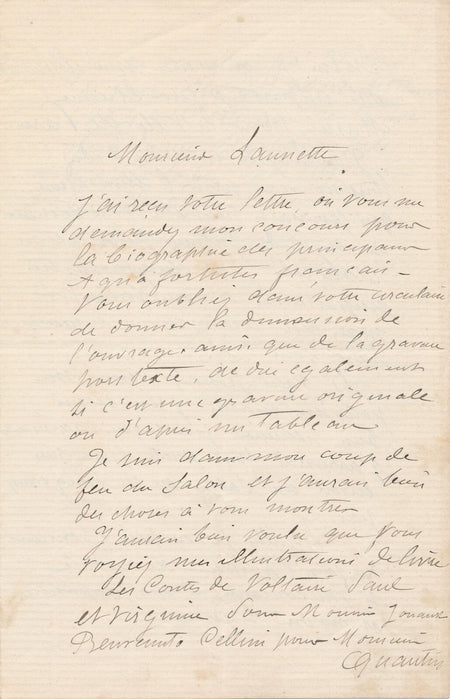 Monsieur Launette
J'ai reçu votre lettre, où vous me
demandez mon concours pour
la biographie des principaux
Aqua fortistes français –
Vous oubliez dans votre circulaire
de donner la dimension de
l'ouvrage, ainsi que de la gravure
hors texte, de dire egalement
si c'est une gravure originale
ou d'après un Tableau
Je suis dans mon coup de
feu du Salon et j'aurais bien
des choses à vous montrer
J'aurais bien voulu que vous
voyiez mes illustrations de livre
Les Contes de Voltaire Paul
et Virginie pour Monsieur Jouaust
Benvenuto Cellini pour Monsieur
Quantin